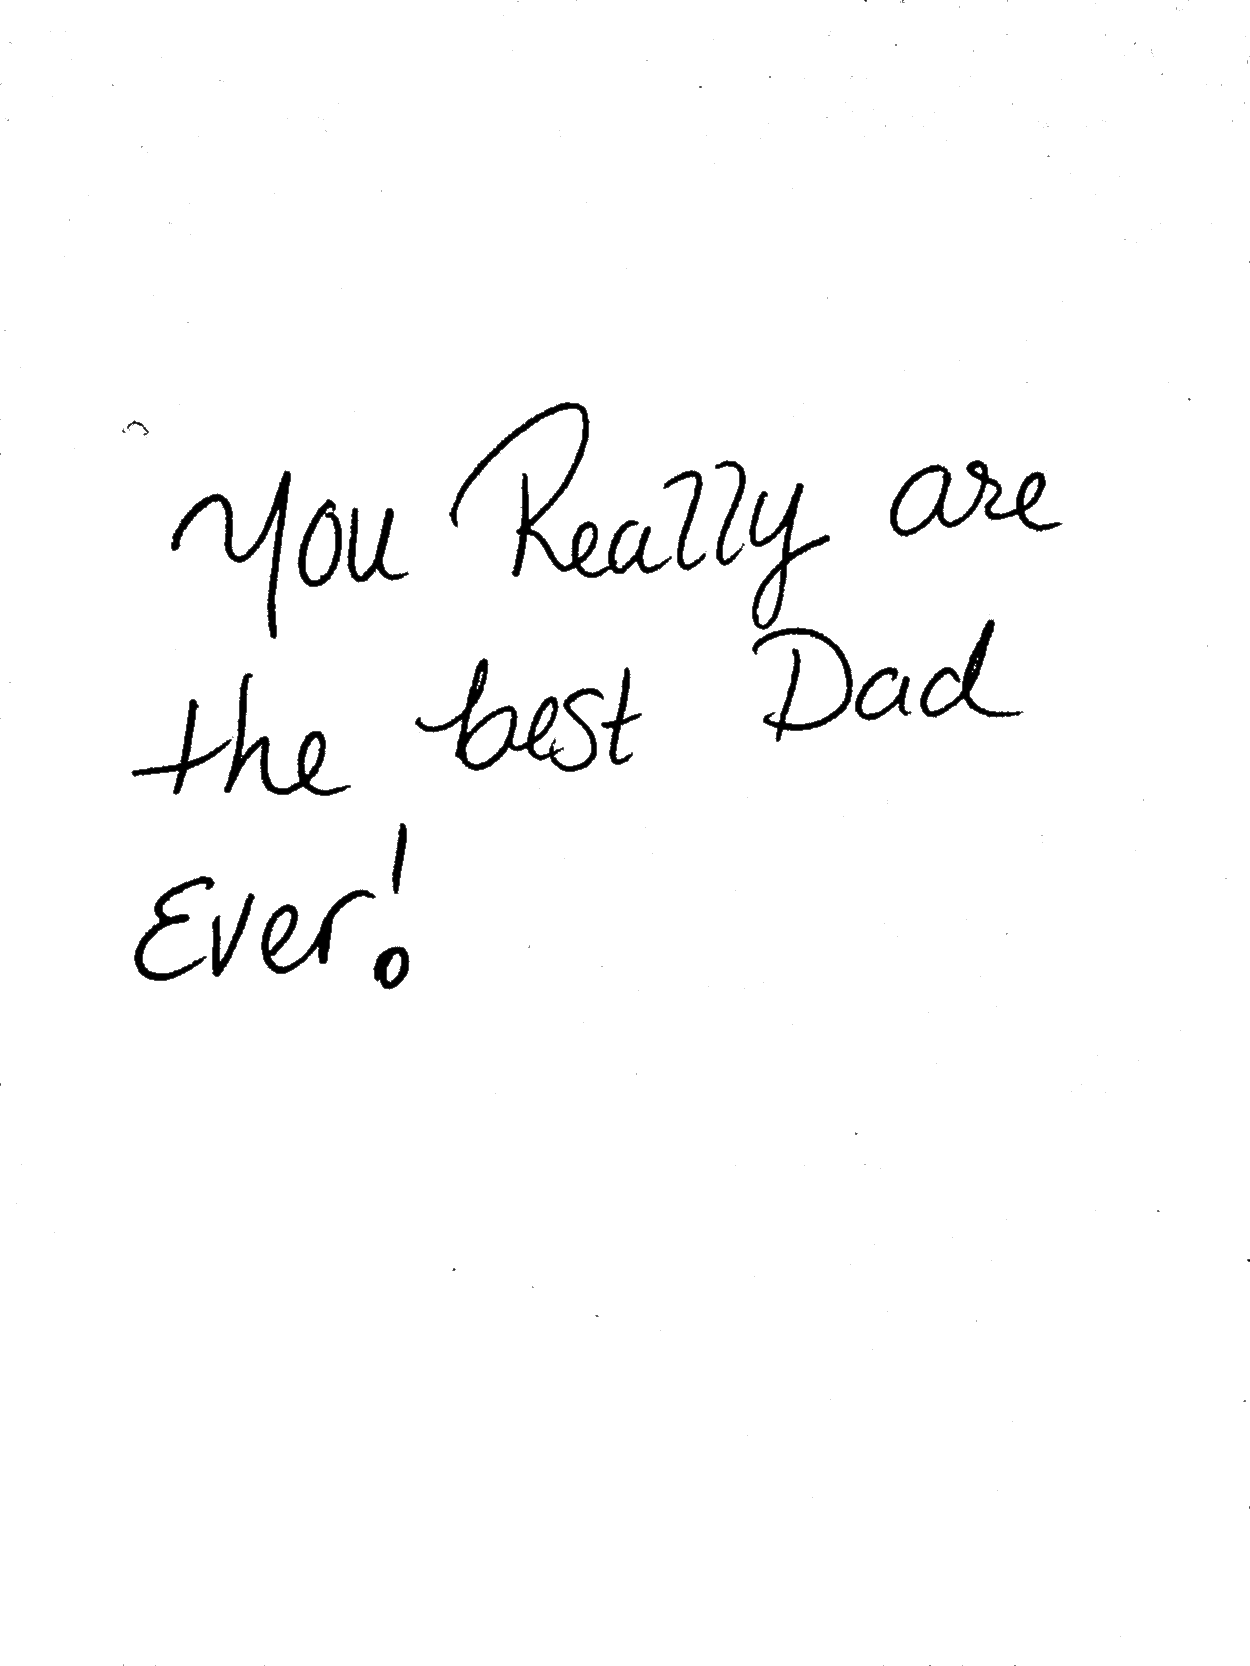 You Really are
the best Dad
Ever!